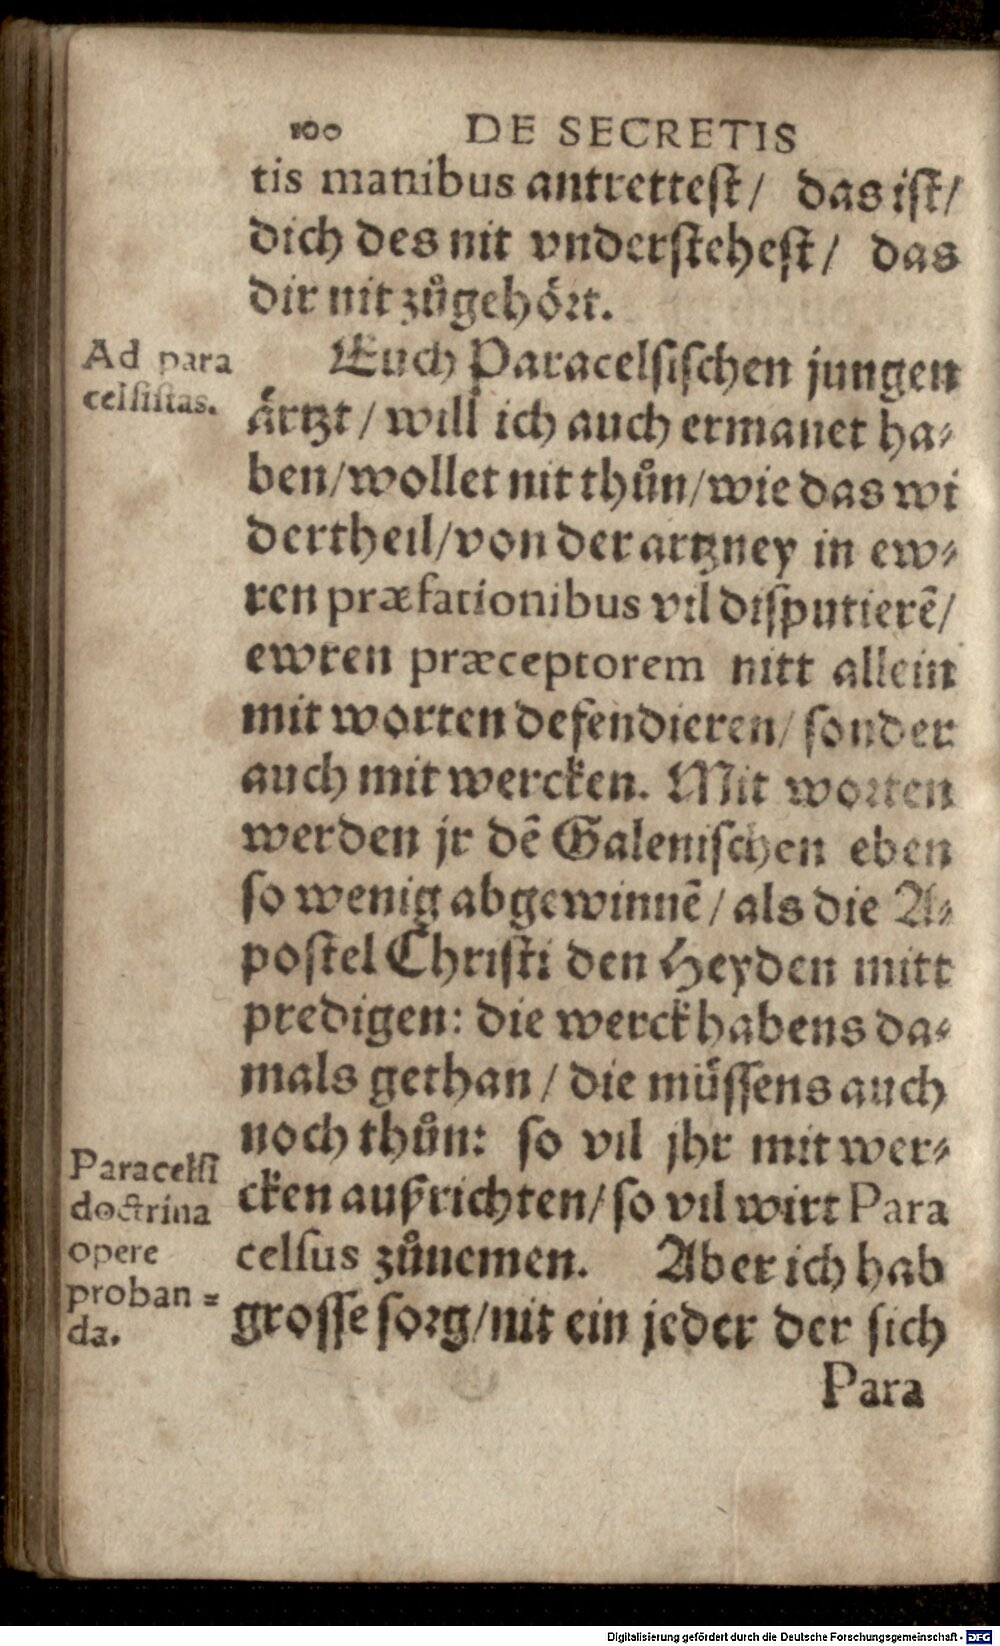 100 DE SECRETIS
tis manibus antrettest/ das ist/
dich des nit vnderstehest/ das
dir nit zůgehört.
Ad para
celsistas.
Euch Paracelsischen jungen
ärtzt/ will ich auch ermanet ha⸗
ben/wollet nit thůn/wie das wi
dertheil/von der artzney in ew⸗
ren præfationibus vil disputierẽ/
ewren præceptorem nitt allein
mit worten defendieren/ sonder
auch mit wercken. Mit worten
werden jr dẽ Galenischen eben
so wenig abgewinnẽ/ als die A⸗
postel Christi den Heyden mitt
predigen: die werck habens da⸗
mals gethan/ die müssens auch
noch thůn: so vil jhr mit wer⸗
cken außrichten/so vil wirt Para
celsus zůnemen. Aber ich hab
grosse sorg/nit ein jeder der sich
Paracelsi
doctrina
opere
proban⸗
da.
Para
Digitalisierung gefördert durch die Deutsche Forschungsgemeinschaft - DFG